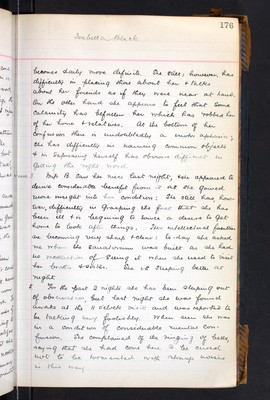 176
Isabella Black
becomes daily more definite. She still, however, has
difficulty in placing those about her & talks
about her friends as if they were near at hand.
On the other hand she appears to feel that some
calamity has befallen her which has robbed her
of her home & relatives. At the bottom of her
confusion there is undoubtedly a amnesic aphasia;
she has difficulty in naming common objects
& in expressing herself has obvious difficulty in
finding the right word.
Miss B. saw her niece last night, & she appeared to
derive considerable benefit from it as she gained
more insight into her condition; she still has how-
ever, difficulty in grasping the fact that she has
been ill & is beginning to evince a desire to get
home to look after things. Her intellectual faculties
are becoming very sharp & clear; to-day she asked
me when the Sanatorium was built as she had
no recollection of seeing it when she used to visit
her brother & sister. She is sleeping better at
night.
For the past 2 nights she has been sleeping out
of observation, but last night she was found
awake at the 11 o'clock visit and was reported to
be talking very foolishly. When seen she was
in a condition of considerable mental con-
fusion. She complained of the ringing of bells,
saying that she had come here to be cured
not to be tormented with strange noises
in this way.